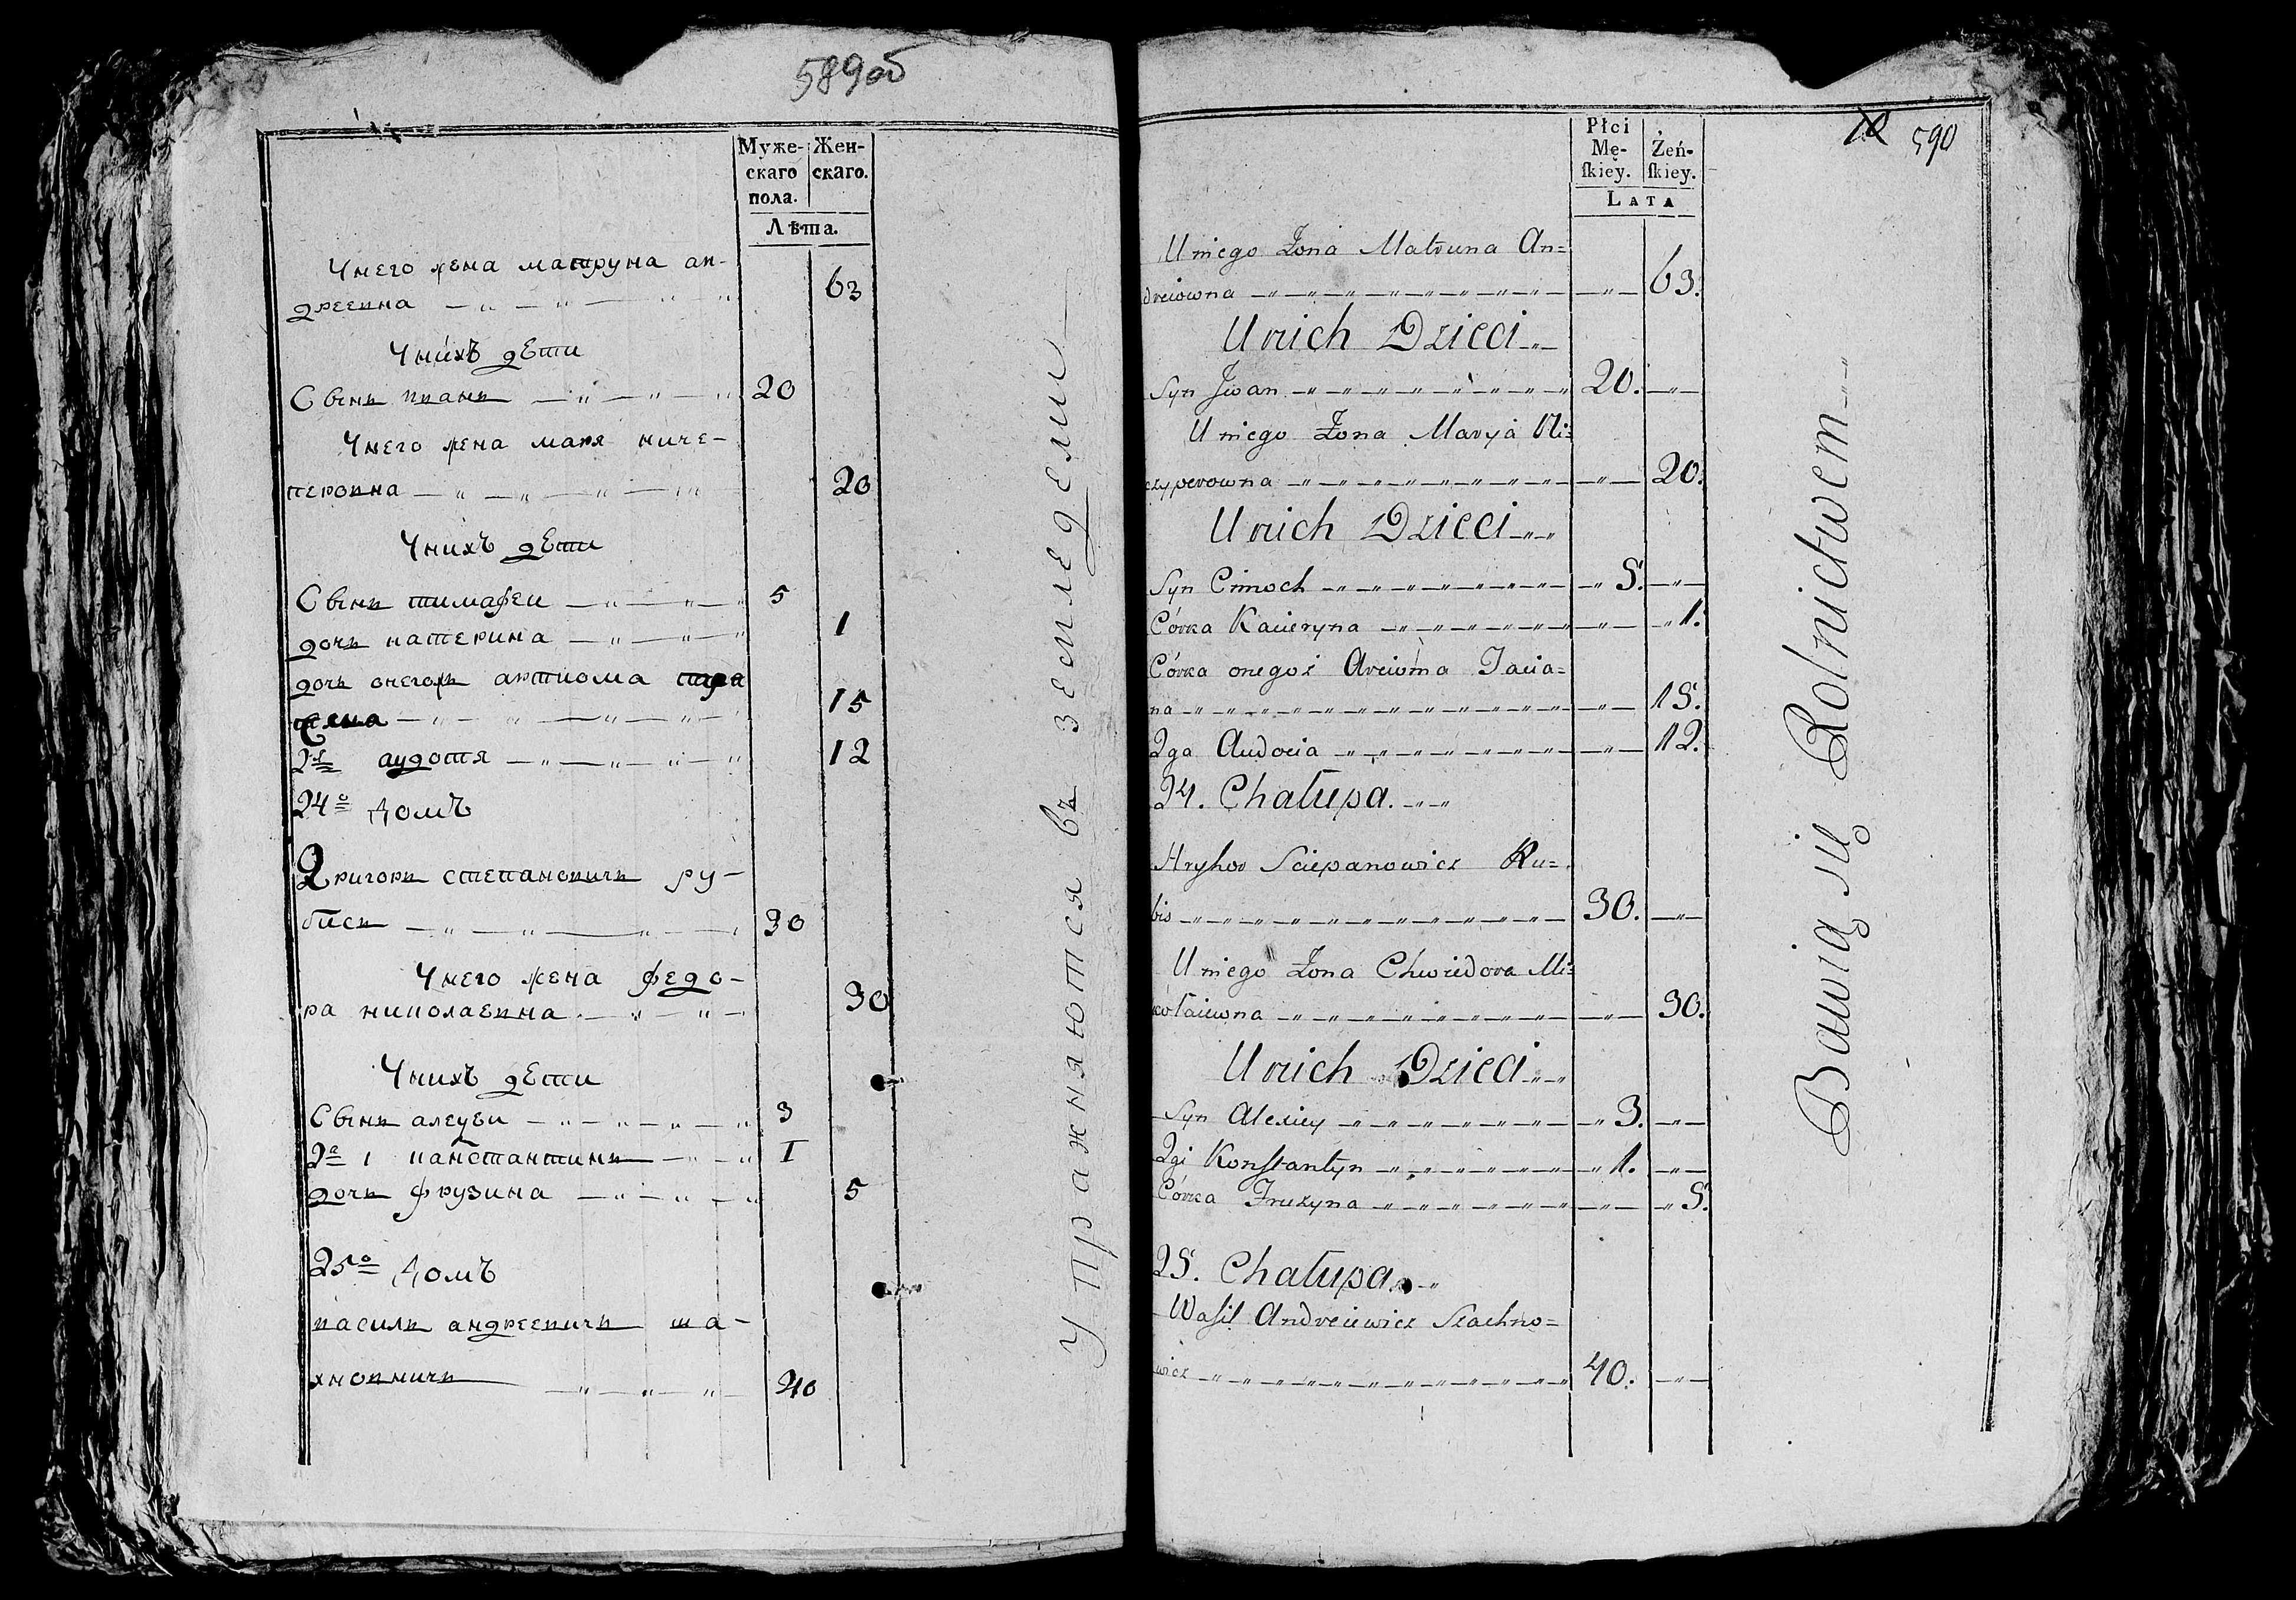 589об
Муже-
скаго
пола.
Жен-
скаго.
Лѣта.
Унего жена матруна ан-
дреевна — „ — „ — „ „ 63
Унихъ дети
Сынъ иванъ — „ — „ — „ 20
Унего жена маря ниче-
перовна — „ — „ — „ — „ 20
Унихъ дети
Сынъ тимафеи — „ — „ — „ 5
дочъ катерина — „ — „ — „ 1
дочъ онегожъ артиома
— „ — „ — „ — „ 15
2я аудотя — „ — „ — „ — „ 12
24о домъ
Григоръ степановичъ ру-
бисъ — „ — „ — „ — „ 30
Унего жена федо-
ра николаевна — „ — „ — 30
Унихъ дети
Сынъ алецеи — „ — „ — „ — „ 3
2а канстантинъ — „ — „ 1
дочъ фрузина — „ — „ — „ 5
25о домъ
василъ андреевичъ ша-
хновичъ — „ — „ — „ — 40
Упражняются въ земледели
10 590
Płci
Mę-
skiey.
Żeń-
skiey.
LATA
U niego Żona Matruna An=
dreiowna — „ — „ — „ — 63.
U nich Dzieci „ —
Syn Jwan — „ — „ — „ — 20. — „ —
U niego Żona Marya Ni=
czyperowna — „ — „ — „ — 20.
U nich Dzieci „ — „
Syn Cimoch — „ — „ — „ — „ 5. — „ —
Córka Kacieryna — „ — „ — „ — „ 1.
Córka onegoż Arcioma Tacia=
na — „ — „ — „ — „ — 15.
2ga Audocia — „ — „ — „ — 12.
24. Chałupa. „ — „
Hryhor Sciepanowicz Ru=
bis — „ — „ — „ — „ — 30. — „ —
U niego Żona Chwiedora Mi=
kołaiewna — „ — „ — „ — 30.
U nich Dzieci „ — „
Syn Alexiey — „ — „ — „ — „ 3. — „ —
2gi Konstantyn — „ — „ — „ — „ 1. — „ —
Córka Fruzyna — „ — „ — „ — „ 5.
25. Chałupa. — „
Wasil Andreiewicz Szachno=
wicz — „ — „ — „ — „ — 40. — „ —
Bawią się Rolnictwem — „